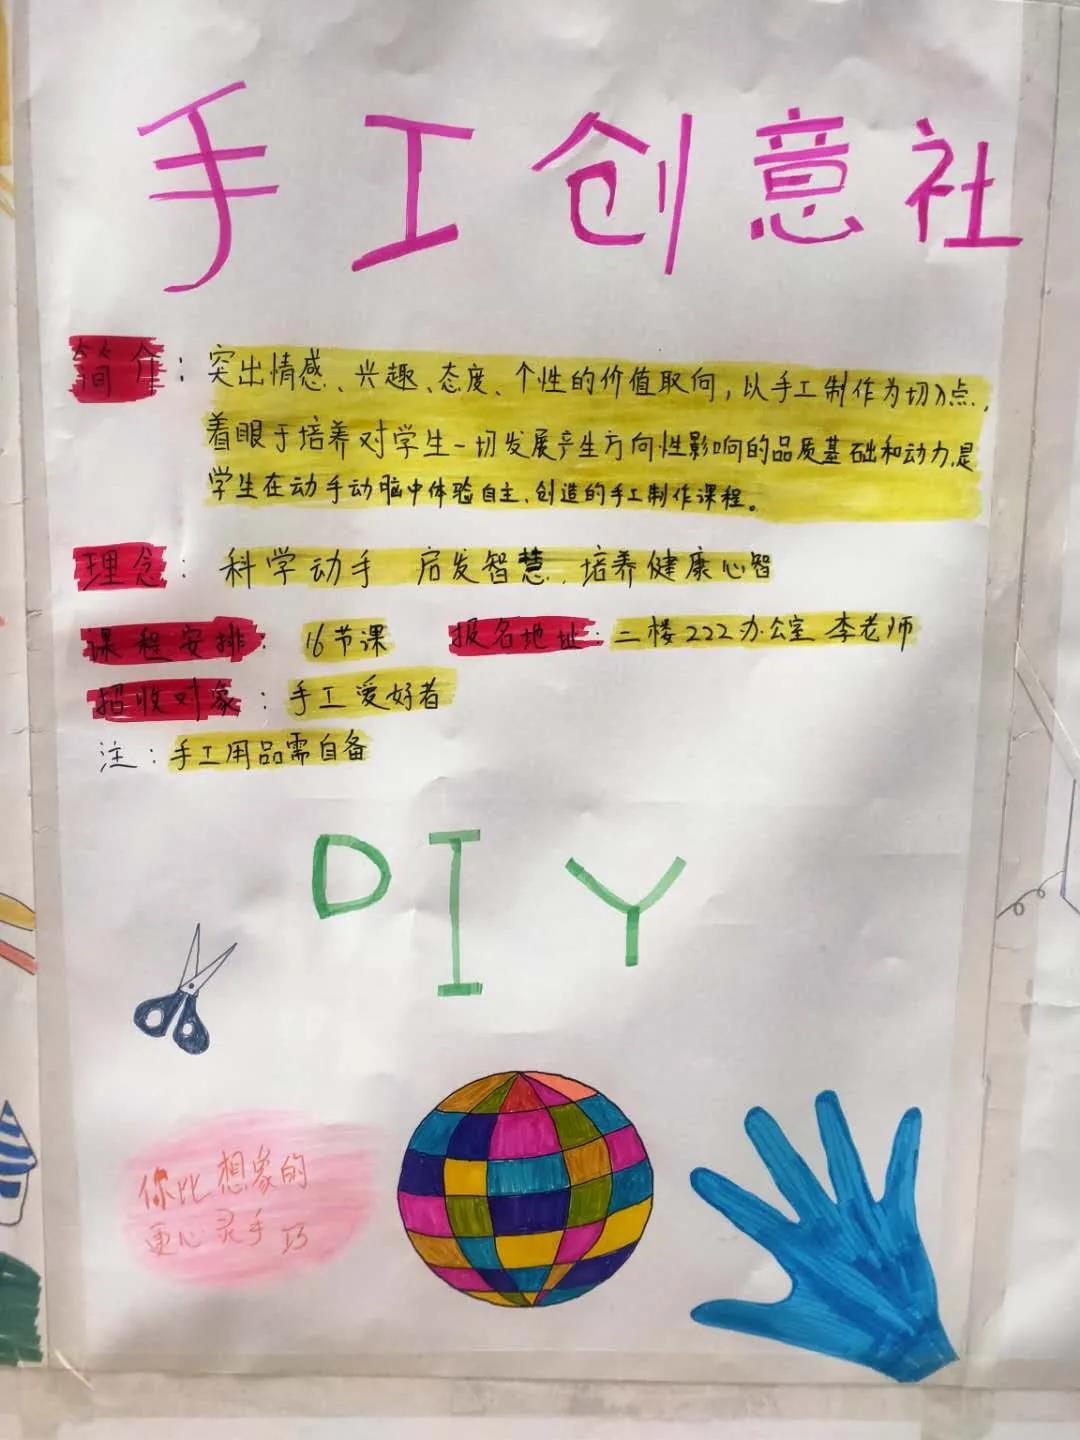 手工创意社
简介：突出情感、兴趣、态度、个性的价值取向，以手工制作为切入点，
着眼于培养对学生一切发展产生方向性影响的品质基础和动力，是
学生在动手动脑中体验自主、创造的手工制作课程。
理念：科学动手 启发智慧，培养健康心智
课程安排：16节课 报名地址：二楼222办公室 李老师
招收对象：手工爱好者
注：手工用品需自备
DIY
你比想象的
更心灵手巧